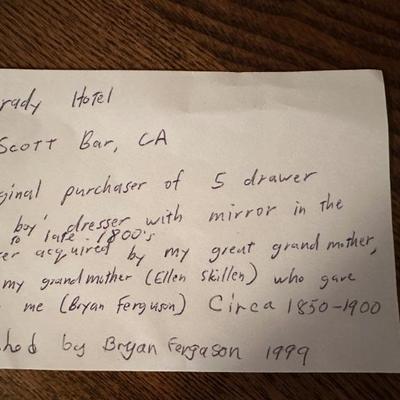 rady Hotel
Scott Bar, CA
ginal purchaser of 5 drawer
boy' dresser with mirror in the
to late 1800's
er acquired by my great grand mother,
my grandmother (Ellen Skillen) who gave
me (Bryan Ferguson) Circa 1850-1900
hed by Bryan Fergason 1999